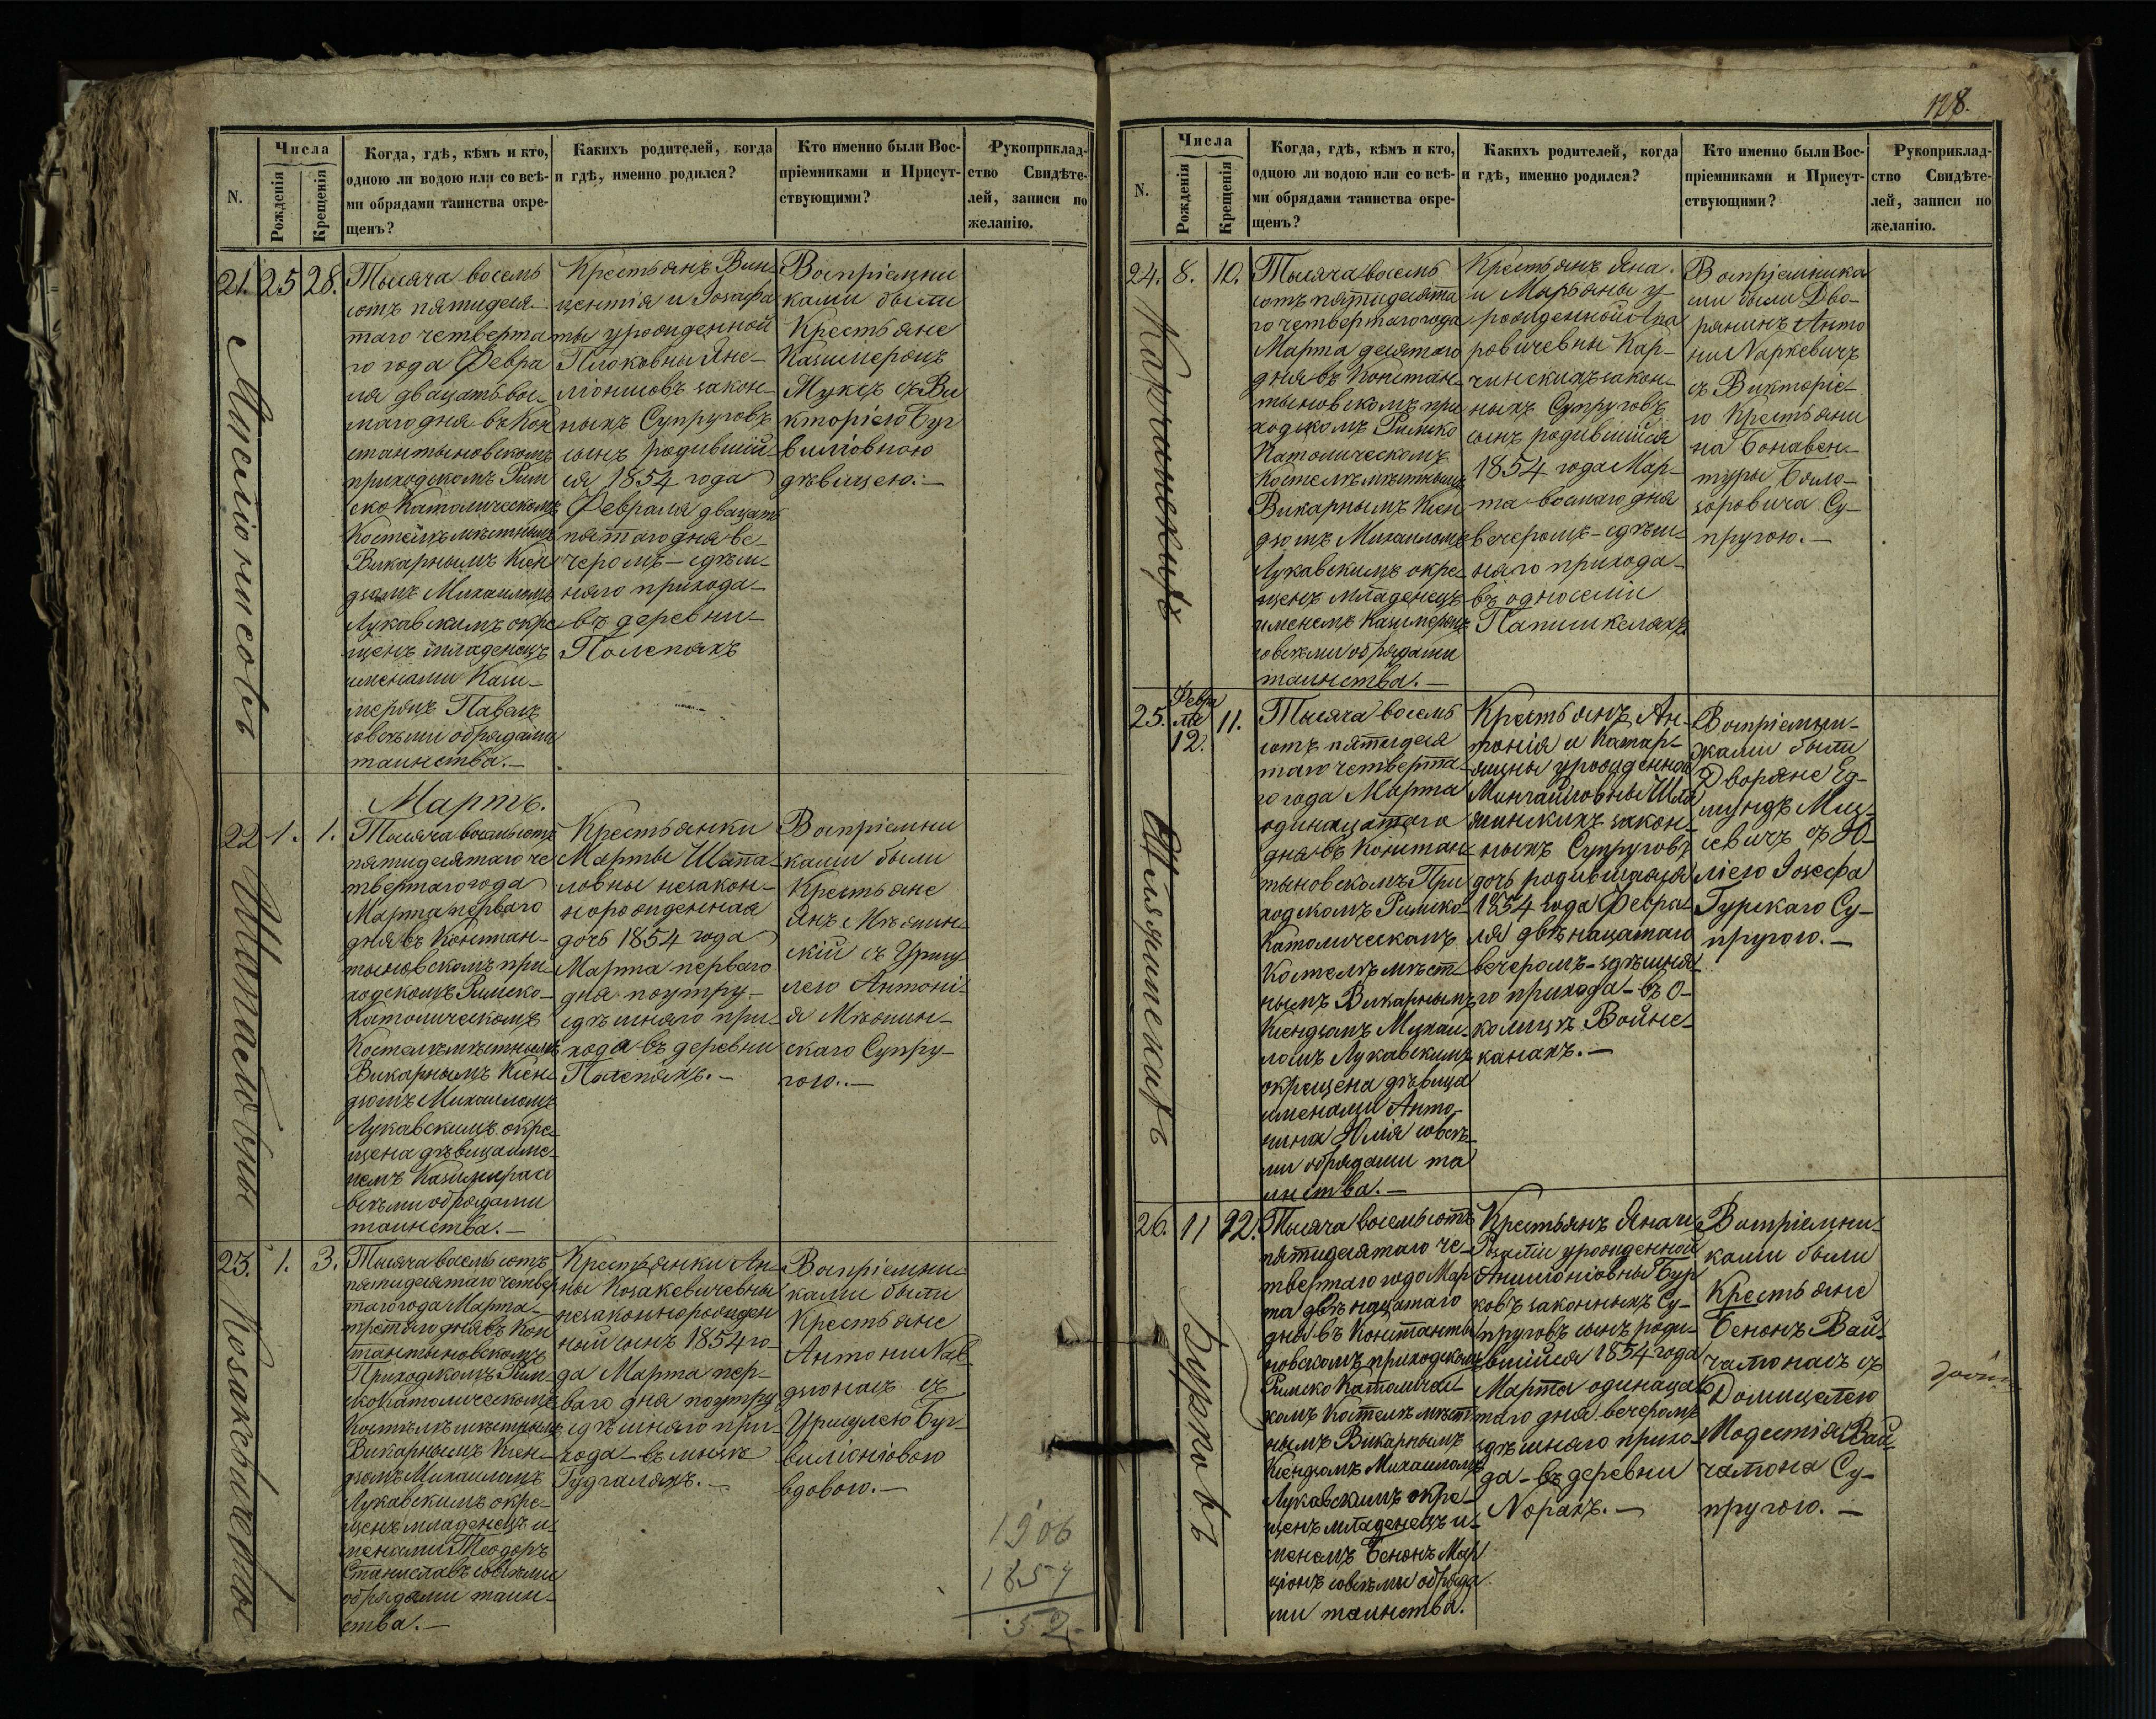 128.
N.
Числа
Рожденія
Крещенія
Когда, гдѣ, кѣмъ и кто,
одною ли водою или со всѣ-
ми обрядами таинства окре-
щенъ?
Какихъ родителей, когда
и гдѣ, именно родился?
Кто именно были Вос-
пріемниками и Присут-
ствующими?
Рукоприклад-
ство Свидѣте-
лей, записи по
желанію.
21.
25
28.
Тысяча восемь
сотъ пятидеся-
таго четверта
го года Февра
ля двацать вос-
маго дня въ Кон
стантыновскомъ
приходскомъ Рим
ско Католическомъ
Костелѣ мѣстнымъ
Викарнымъ Ксен
дзомъ Михаиломъ
Лукавскимъ окре
щенъ младенецъ
именами Кази-
меръ Павелъ
совсѣми обрядами
таинства.-
Крестьянъ Вин-
центія и Іозафа
ты урожденной
закон-
ныхъ Супруговъ
сынъ родившій-
ся 1854 года
Февраля двацать
пятаго дня ве-
черомъ - сдѣш-
няго прихода-
въ деревни-
Полепяхъ
Воспріемни
ками были
Крестьяне
Казимеръ
съ Ви
кторіею Буг
вилiовною
дѣвицею.-
Мартъ.
22
1.
1.
Тысяча восемьсотъ
пятидесятаго че
твертаго года
Марта перваго
дня въ Констан-
тыновскомъ при-
ходскомъ Римско-
Католическомъ
Костелѣ мѣстнымъ
Викарнымъ Ксен
дзомъ Михаиломъ
Лукавскимъ окре-
щена дѣвица име-
немъ Казимира со
всѣми обрядами
таинства.-
Крестьянки
Марты Шапа-
ловны незакон-
норожденная
дочь 1854 года
Марта перваго
дня поутру-
сдѣшняго при-
хода въ деревни
Полепяхъ.-
Воспріемни
ками были
Крестьяне
Янъ
скій съ Уршу
лею Антоні-
я
скаго Супру-
гою.-
23.
1.
3.
Козакевичевны
Тысяча восемь сотъ
пятидесятаго четвер
таго года Марта-
третяго дня въ Кон
стантыновскомъ
Приходскомъ Рим-
ско Католическомъ
Костелѣ мѣстнымъ
Викарнымъ Ксен-
дзомъ Михаиломъ
Лукавскимъ окре-
щенъ младенецъ и-
менами Теодоръ
Станиславъ совсѣми
обрядами таин-
ства.-
Крестьянки Ан-
ны Козакевичевны
незаконнорожден
ной сынъ 1854 го-
да Марта пер-
ваго дня поутру
сдѣшняго при-
хода - въ мызѣ
Гудгаляхъ.-
Воспріемни-
ками были
Крестьяне
Антони
съ
Уршулею Буг-
виліоніовою
вдовою.-
1906
1854
52
N.
Числа
Рожденія
Крещенія
Когда, гдѣ, кѣмъ и кто,
одною ли водою или со всѣ-
ми обрядами таинства окре-
щенъ?
Какихъ родителей, когда
и гдѣ, именно родился?
Кто именно были Вос-
пріемниками и Присут-
ствующими?
Рукоприклад-
ство Свидѣте-
лей, записи по
желанію.
24.
8.
10.
Тысяча восемь
сотъ пятидесята
го четвертаго года
Марта десятаго
дня въ Констан-
тыновскомъ при
ходскомъ Римско
Католическомъ
Костелѣ мѣстнымъ
Викарнымъ Ксен
дзомъ Михаиломъ
Лукавскимъ окре-
щенъ младенецъ
именемъ Казимеръ
совсѣми обрядами
таинства.-
Крестьянъ Яна
и Марьяны у-
рожденной
ровичевны Кар-
чинскихъ закон-
ныхъ Супруговъ
сынъ родившійся
1854 года Мар-
та восмаго дня
вечеромъ - сдѣш-
няго прихода-
въ односеліи
Папишкеляхъ
Воспріемника
ми были Дво-
рянинъ Анто
ни Наркевичъ
съ Викторіе-
ю Крестьяни
на Бонавен-
туры Бяло-
зоровича Су-
пругою.-
25.
Февра
ля
12.
11.
Тысяча восемь
сотъ пятидеся
таго четверта-
го года Марта
одинацатаго
дня въ Констан
тыновскомъ При
ходскомъ Римско-
Католическомъ
Костелѣ мѣст-
нымъ Викарнымъ
Ксендзомъ Михаи-
ломъ Лукавскимъ
окрещена дѣвица
именами Анто-
нина Юлія совсѣ-
ми обрядами та
инства.-
Крестьянъ Ан-
тонія и Катар-
жины урожденной
Шля
минскихъ закон-
ныхъ Супруговъ
дочь родившаяся
1854 года Февра-
ля двѣнацатаго
вечеромъ - здѣшня
го прихода - въ о-
колицѣ Войне-
канахъ.-
Воспріемни-
ками были
Дворяне Ед-
мундъ Миц-
кевичъ съ Ю-
ліею Іозефа
Гурскаго Су-
пругою.-
26.
11
12.
Бурковъ
Тысяча восемьсотъ
пятидесятаго че-
твертаго года Мар
та двѣнацатаго
дня въ Константы
новскомъ приходскомъ
Римско Католичес-
комъ Костелѣ мѣст
нымъ Викарнымъ
Ксендзомъ Михаиломъ
Лукавскимъ окре-
щенъ младенецъ и-
менемъ Бенонъ Мар
ціонъ совсѣми обряда
ми таинства.
Крестьянъ Яна и
Розаліи урожденной
Бур
ковъ законныхъ Су-
пруговъ сынъ роди-
вшійся 1854 года
Марта одинаца
таго дня вечеромъ
здѣшняго прихо-
да - въ деревни
Норахъ.-
Воспріемни-
ками были
Крестьяне
Бенонъ Вай-
чатонасъ съ
Домицелею
Модестія Вай
чатона Су-
пругою.-